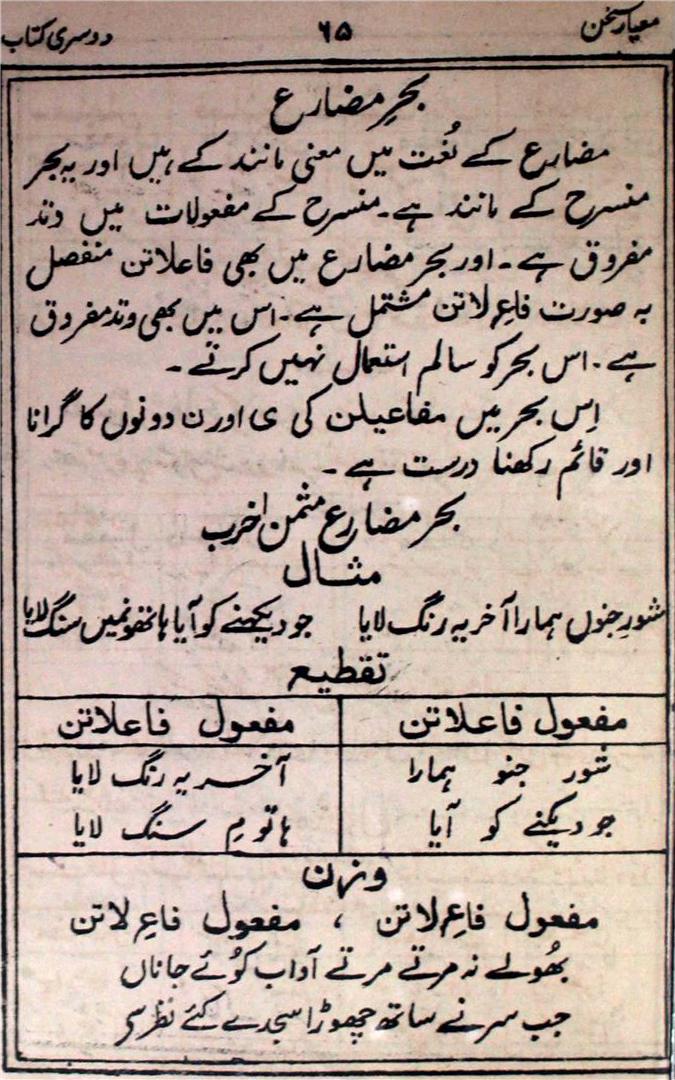 معیار سخن ۶۵ دوسری کتاب
بحرِ مضارع
مضارع کے لُغت میں معنی مانند کے ہیں اور یہ بحر
منسرح کے مانند ہے۔ منسرح کے مفعولات میں وتد
مفروق ہے۔ اور بحر مضارع میں بھی فاعلاتن منفصل
بہ صورت فاعِ لاتن مشتمل ہے۔ اس میں بھی وتد مفروق
ہے۔ اس بحر کو سالم استعمال نہیں کرتے۔
اِس بحر میں مفاعیلن کی ی اور ن دونوں کا گرانا
اور قائم رکھنا درست ہے۔
بحر مضارع مثمن اخرب
مثال
شورِ جنوں ہمارا آخر یہ رنگ لایا جو دیکھنے کو آیا ہاتھوں میں سنگ لایا
تقطیع
مفعول فاعلاتن مفعول فاعلاتن
شور جنو ہمارا آخر یہ رنگ لایا
جو دیکنے کو آیا ہاتو مِ سنگ لایا
وزن
مفعول فاعِ لاتن ، مفعول فاعِ لاتن
بھُولے نہ مرتے مرتے آداب کوُئے جاناں
جب سر نے ساتھ چھوڑا سجدے کئے نظر سے